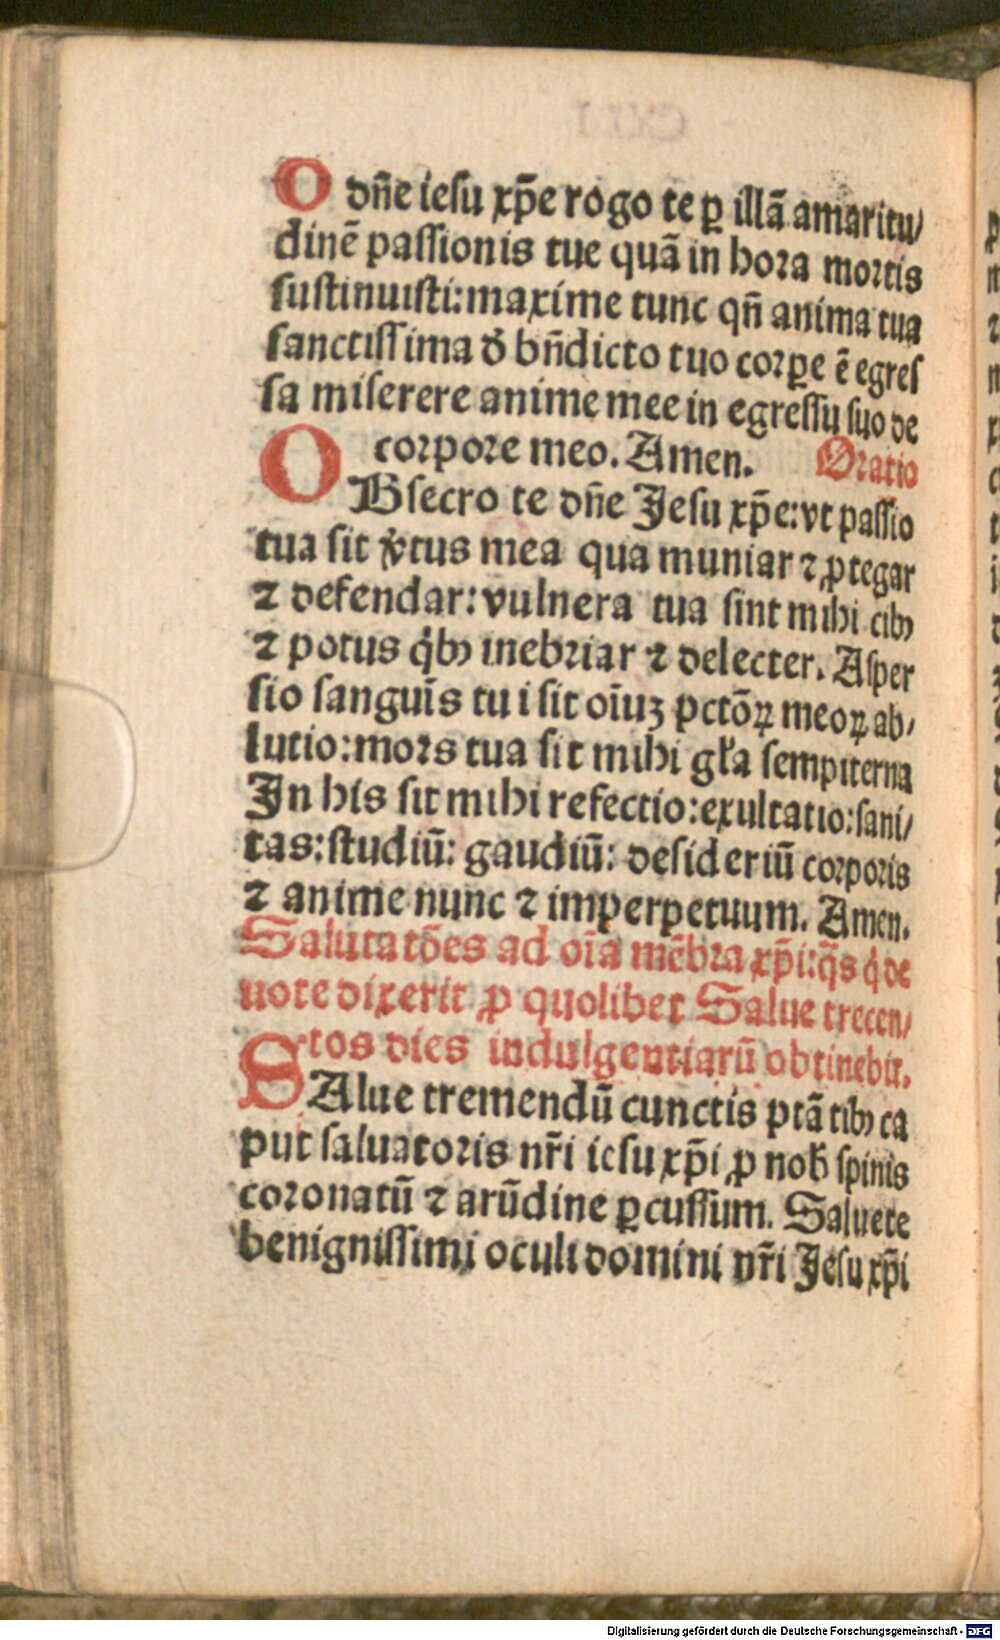 O dn̄e iesu xp̄e rogo te ꝑ illā amaritu/
dinē passionis tue quā in hora mortis
sustinuisti: maxime tunc qn̄ anima tua
sanctissima d̄ bn̄dicto tuo corꝑe ē egres
sa miserere anime mee in egressu suo de
corpore meo. Amen. Oratio
OBsecro te dn̄e Jesu xp̄e: vt passio
tua sit v̄tus mea qua muniar ⁊ ꝓtegar
⁊ defendar: vulnera tua sint mihi cibꝰ
⁊ potus qͥbꝰ inebriar ⁊ delecter. Asper
sio sanguīs tui sit oīuꝫ pctōꝝ meoꝝ ab/
lutio: mors tua sit mihi gl̄a sempiterna
In his sit mihi refectio: exultatio: sani/
tas: studiū: gaudiū: desideriū corporis
⁊ anime nunc ⁊ imperpetuum. Amen.
Salutatōes ad oīa mēbra xp̄i: q̄s qͥ de
uote dixerit ꝓ quolibet Salue trecen/
tos dies indulgentiarū obtinebit.
SAlue tremendū cunctis ptātibꝰ ca
put saluatoris nr̄i iesu xp̄i ꝓ nob̄ spinis
coronatū ⁊ arūdine ꝑcussum. Saluete
benignissimi oculi domini nr̄i Jesu xp̄i
Digitalisierung gefördert durch die Deutsche Forschungsgemeinschaft - DFG